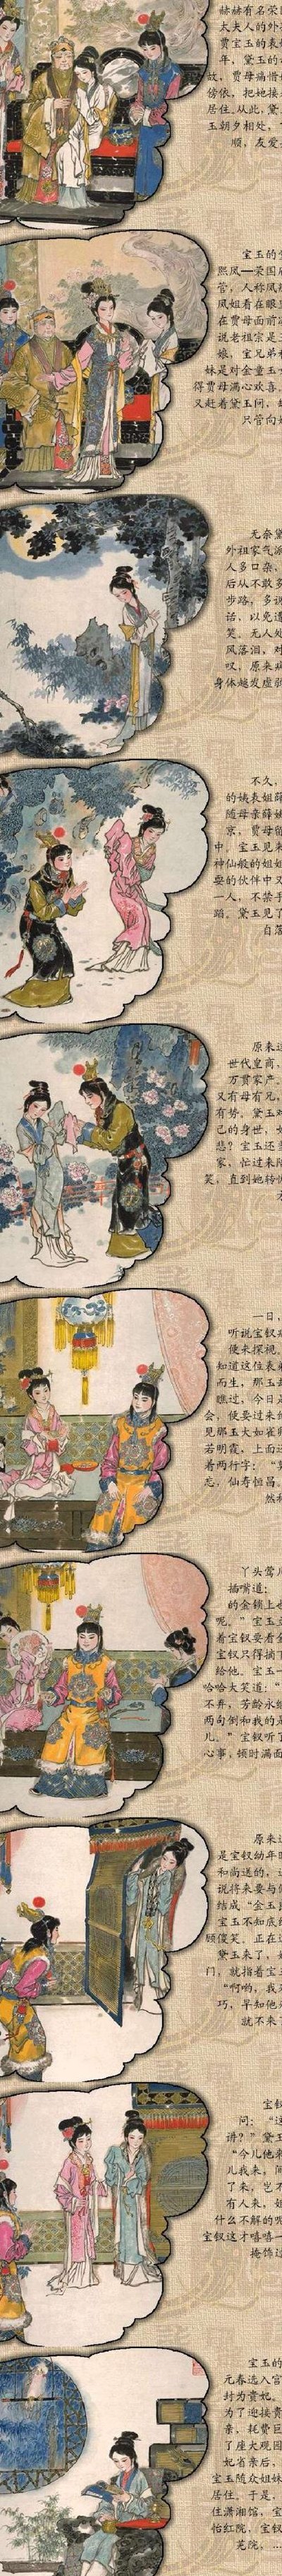 赫赫有名荣国
太夫人的外
贾宝玉的表
年，黛玉的
故，贾母痛惜
傍依，把她接
居住。从此，黛
玉朝夕相处，
顺，友爱
宝玉的
熙凤—荣国府
管，人称凤
凤姐看在眼
在贾母面前
说老祖宗是
娘，宝兄弟
妹是对金童玉
得贾母满心欢喜，
又赶着黛玉问，
只管向
无奈黛
外祖家气派
人多口杂，
后从不敢多
步路，多说
话，以免遭
笑。无人处
风落泪，对
叹，原来
身体越发虚弱
不久，
的姨表姐薛
随母亲薛姨
京，贾母留
中。宝玉见来
神仙般的姐姐
耍的伙伴中又
一人，不禁手
蹈。黛玉见了
自落
原来
世代皇商，
万贯家产。
又有母有兄，
有势。黛玉对
己的身世，
悲？宝玉还
家，忙过来陪
笑，直到她转
一日，
听说宝钗
便来探视。
知道这位表弟
而生，那玉
瞧过，今日
会，便要过来
见那玉大如雀卵
若明霞，上面
着两行字：“莫
志，仙寿恒昌。
然
丫头莺儿
插嘴道：
的金锁上也
呢。”宝玉
着宝钗要看
宝钗只得摘
给他。宝玉一
哈哈大笑道：“
不弃，芳龄永
两句倒和我的是
儿。”宝钗听了
心事，顿时满面
原来
是宝钗幼年
和尚送的，
说将来要与
结成“金玉
宝玉不知底
顾傻笑。正在
黛玉来了，
门，就指着宝
“啊哟，我
巧，早知他
就不来了
宝钗
问：“这
讲？”黛玉
“今儿他来
儿我来，间
了来，岂不
有人来，姐
什么不解的呢
宝钗这才嘻嘻一
掩饰过
宝玉的
元春选入宫
封为贵妃。
为了迎接贵
亲，耗费巨
了座大观园
妃省亲后，
宝玉随众姐妹
居住。于是，
住潇湘馆，宝
怡红院，宝钗
芜院，…